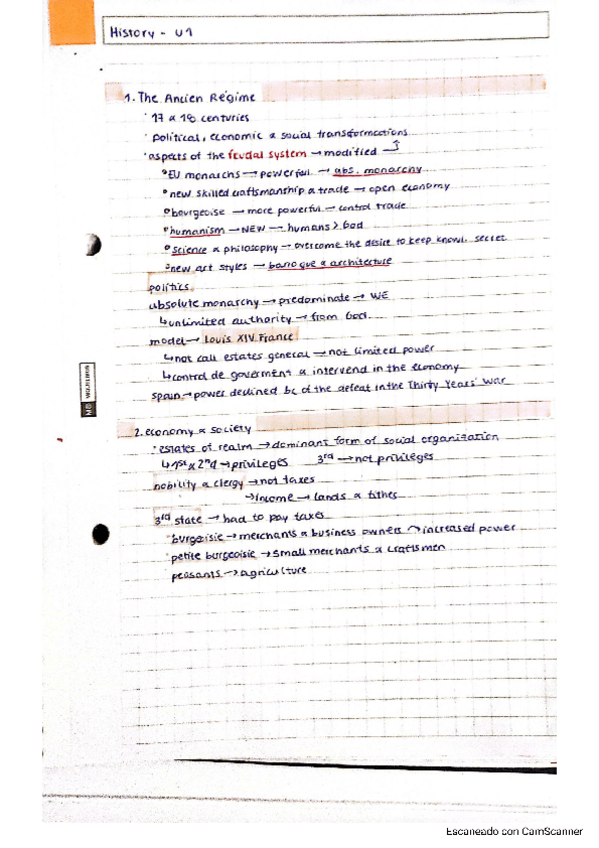 History - U1
1. The Ancien Régime
· 17 & 18 centuries
· political, economic & social transformations
· aspects of the feudal system → modified
° EU monarchs → powerful → abs. monarchy
° new skilled craftsmanship & trade → open economy
° bourgeoise → more powerful → control trade
° humanism → NEW → humans > God
° science & philosophy → overcome the desire to keep knowl. secret
° new art styles → baroque & architecture
politics
absolute monarchy → predominate → WE
↳ unlimited authority → from God.
model → Louis XIV France
↳ not call estates general → not limited power
↳ control de goverment & intervend in the economy
spain → power declined bc of the defeat in the Thirty Years' War
2. economy & society
· estates of realm → dominant form of social organitation
↳ 1st & 2nd → privileges 3rd → not privileges
nobility & clergy → not taxes
→ income → lands & tithes
3rd state → had to pay taxes
burgeoisie → merchants & business owners → increased power
petite burgeoisie → small merchants & craftsmen
peasants → agriculture
Escaneado con CamScanner